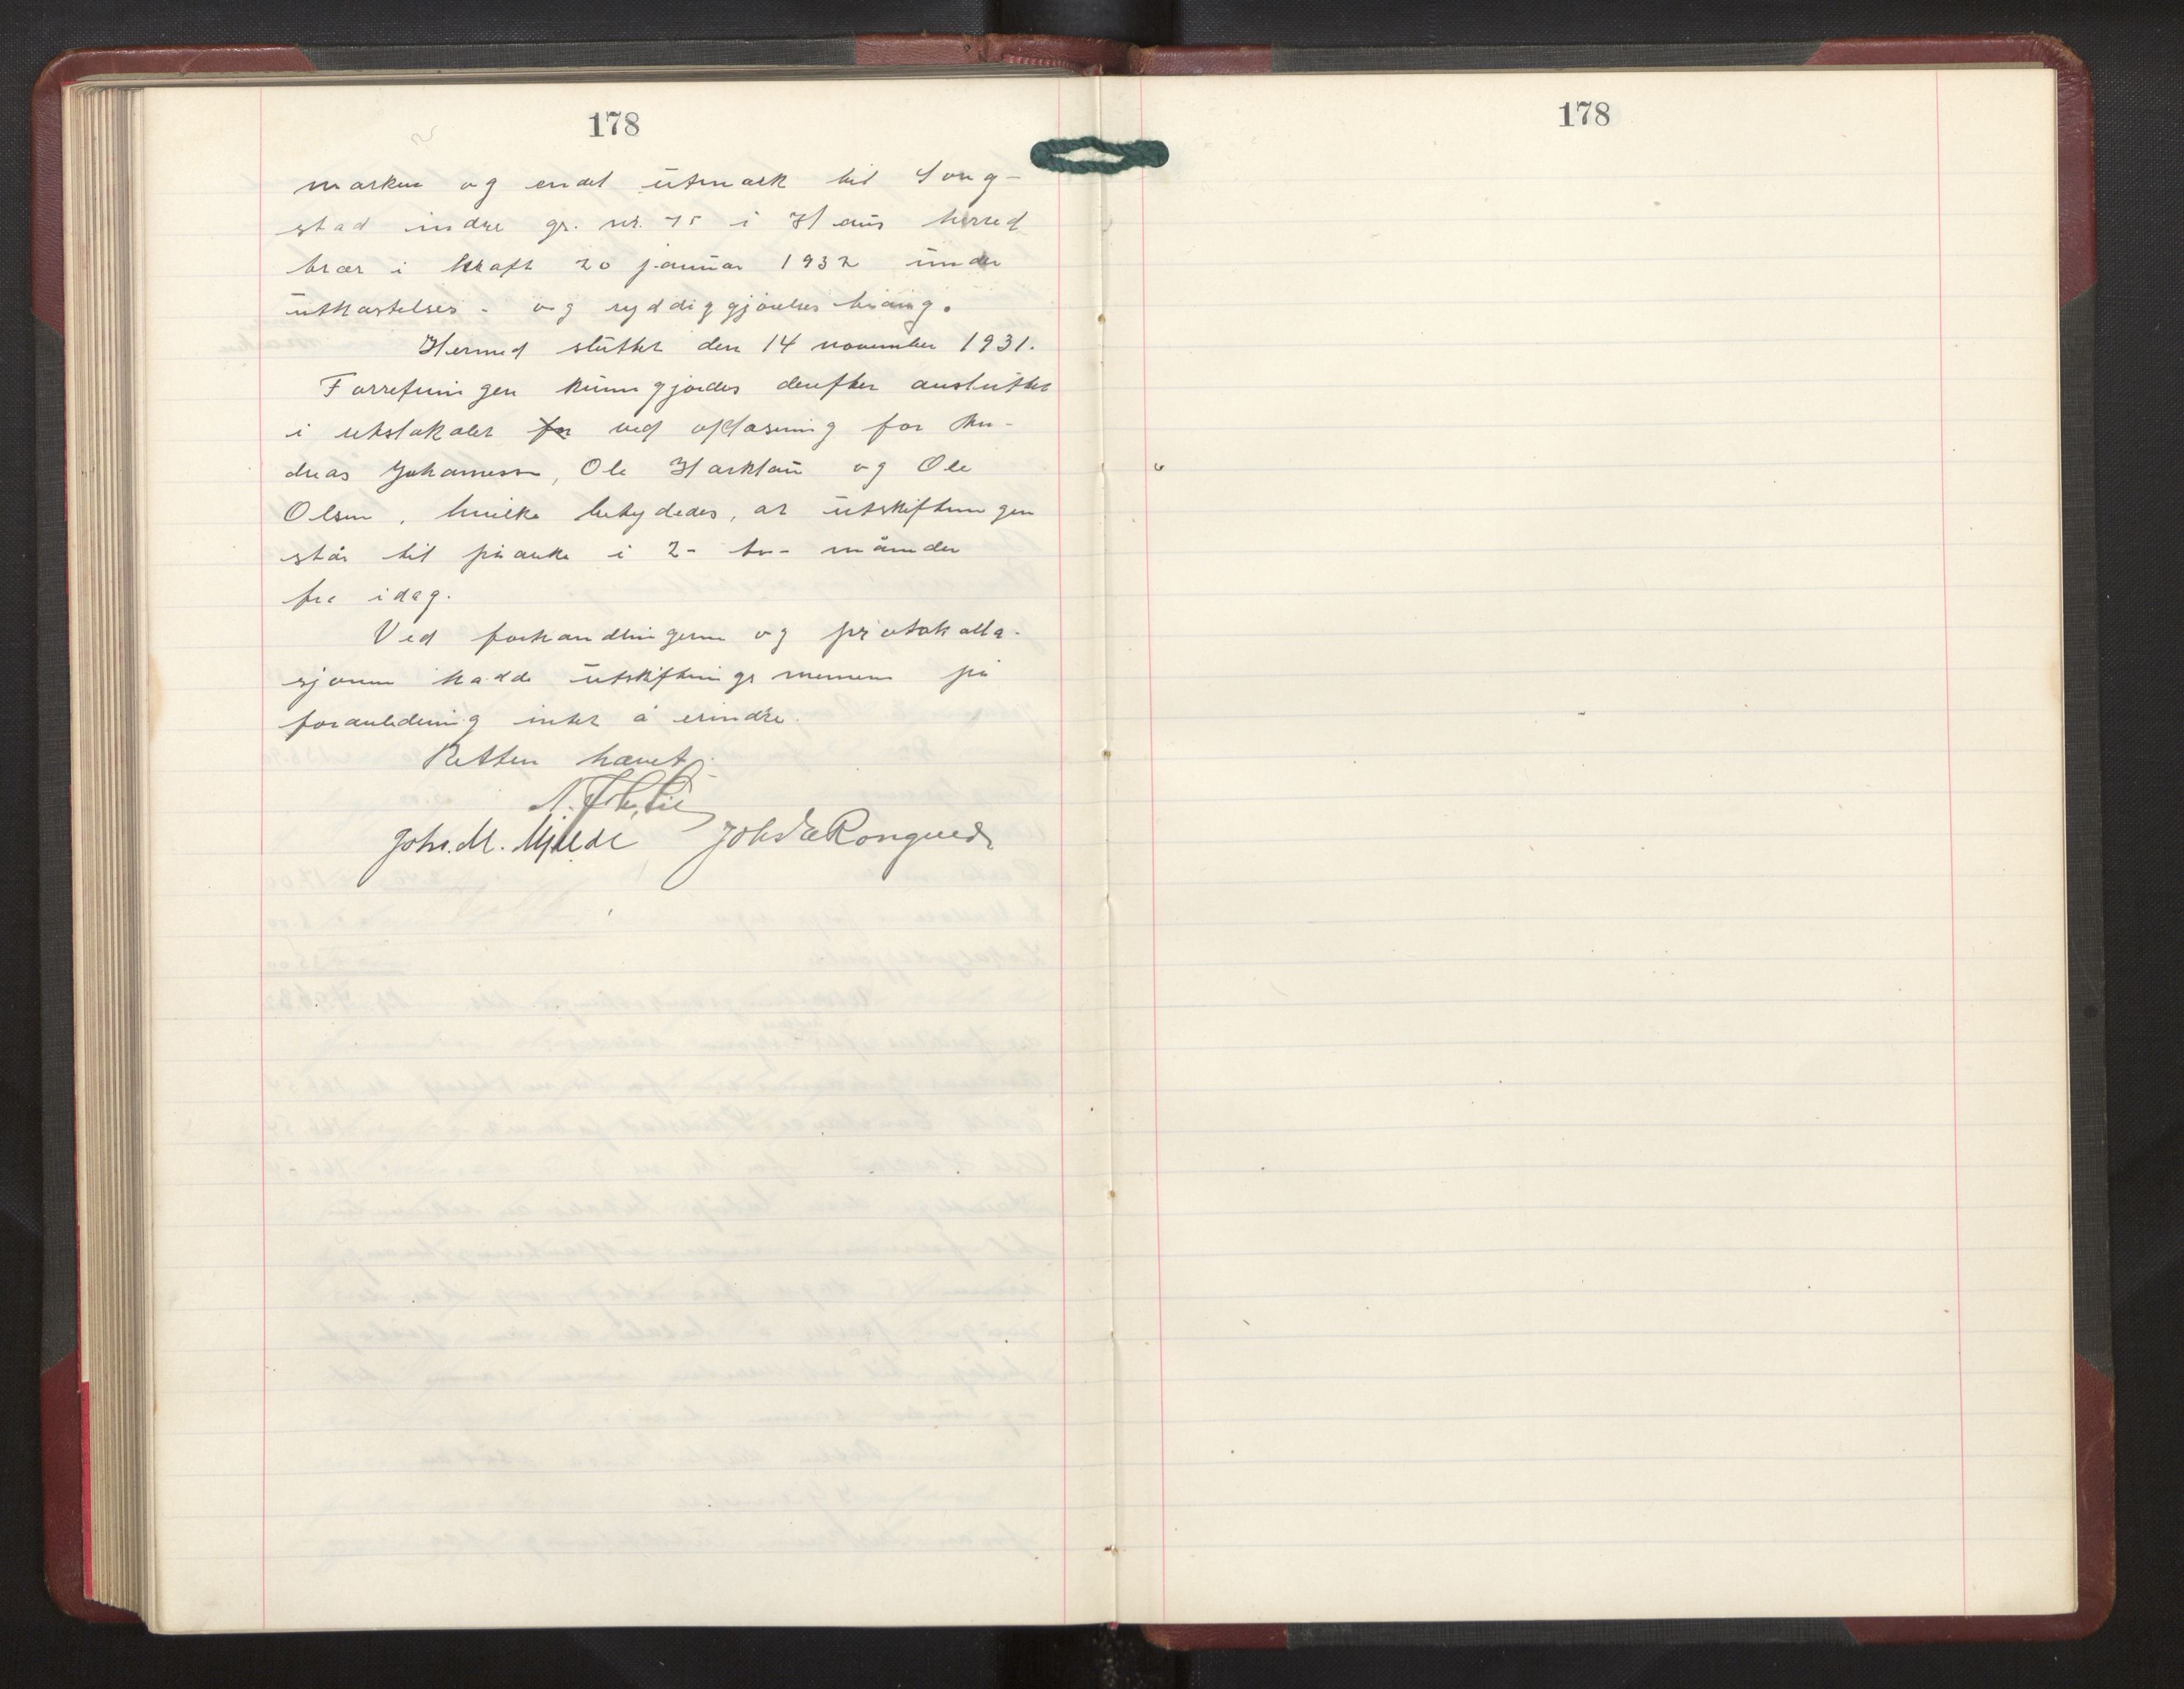 178
marken og endel utmark til Song-
stad indre gr. nr. 75 i Haus herred
trær i kraft 20 januar 1932 under
utkastelses- og ryddiggjørelses tvang.
Hermed sluttet den 14 november 1931.
Forretningen kunngjordes derefter avsluttet
i retslokalet for ved oplæsning for An-
dreas Johannessen, Ole Harklau og Ole
Olsen, hvilke betydedes, at utskiftningen
står til påanke i 2- to- måneder
fra idag.
Ved forhandlingerne og protokolla-
sjonen hadde utskiftningsmennene på
foranledning intet å erindre.
Retten hævet.
Johs. M. Mjelde
178